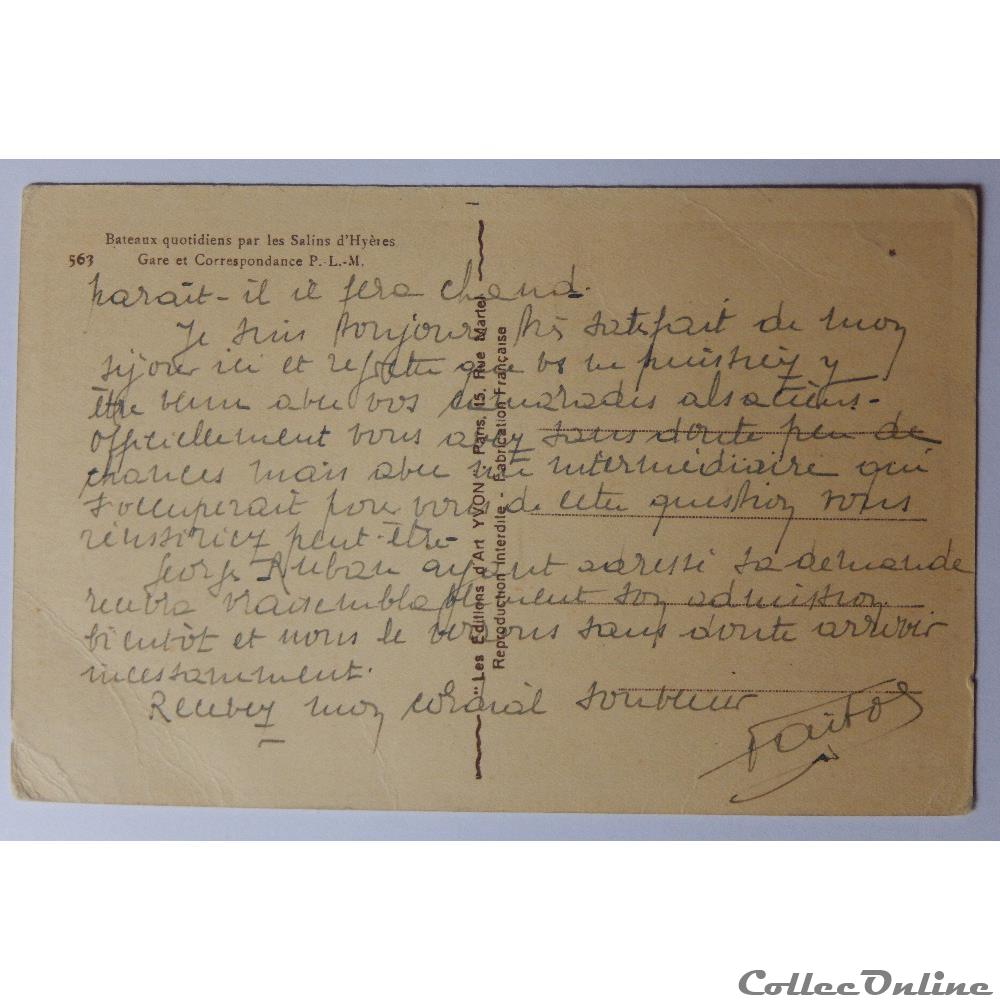 Bateaux quotidiens par les Salins d'Hyères
563 Gare et Correspondance P.-L.-M.
parait-il il fera chaud.
Je suis toujours très satisfait de mon
séjour ici et regrette que vs ne puissiez y
être venu avec vos camarades alsatiens-
Officiellement vous avez sans doute peu de
chances mais avec un intermédiaire qui
s'occuperait pour vous de cette question vous
réussiriez peut-être-
George ayant adressé sa demande
recevra vraisemblablement son admission
bientôt et nous le verrons sans doute arriver
incessamment.
Recevez mon cordial souvenir
"Les Editions d'Art YVON" Paris, 15, Rue Martel
Reproduction Interdite - Fabrication Française
CollecOnline